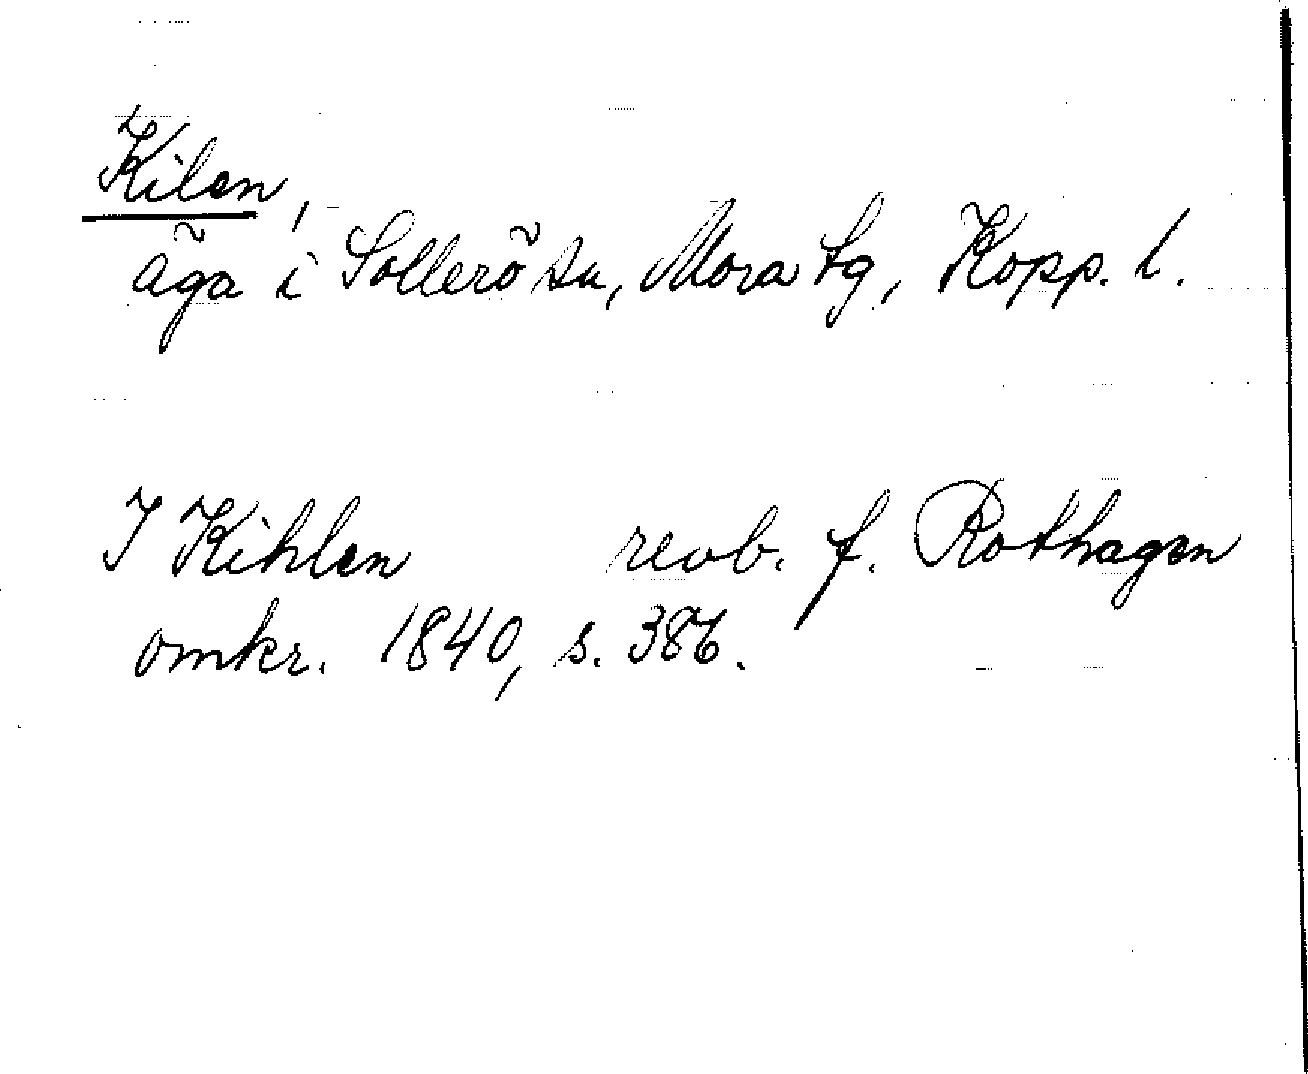 Kilen,
äga i Sollerö sn, Mora tg, Kopp. l.
I Kihlen revb. f. Rothagen
omkr. 1840, s. 386.